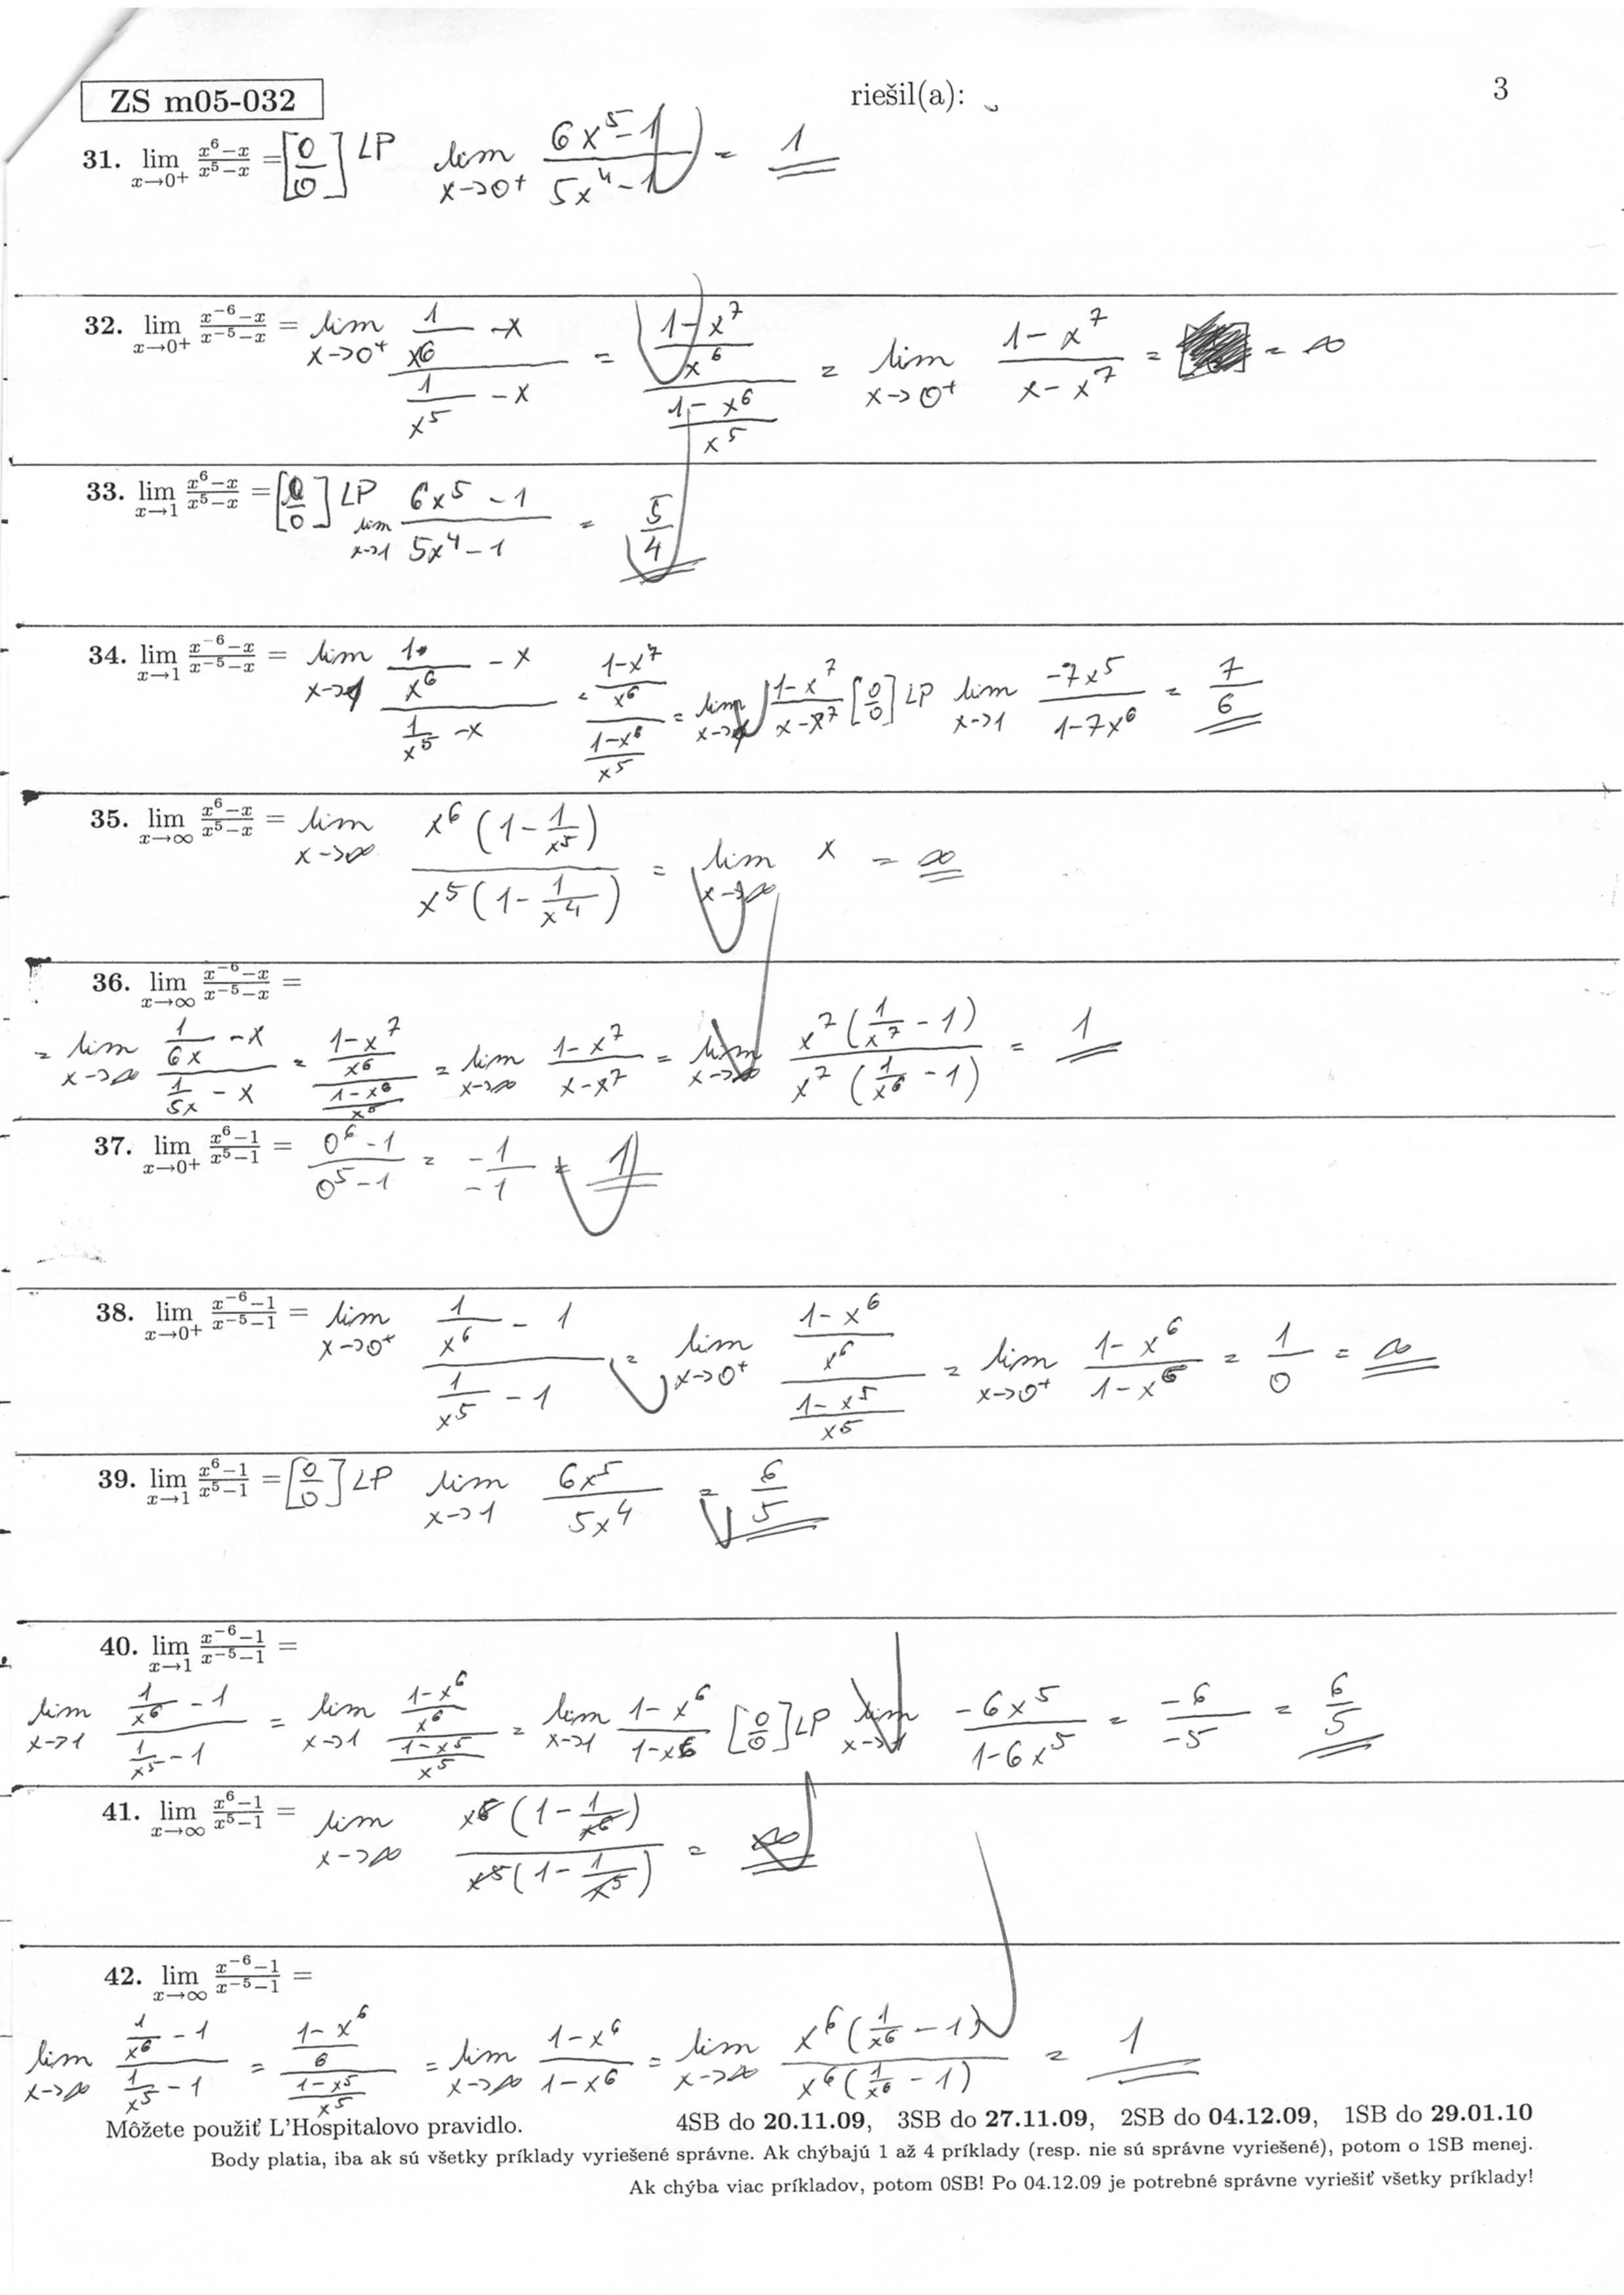 ZS m05-032 riešil(a): 3
31. lim x→0+ (x^6−x)/(x^5−x) = [0/0] LP lim x→0+ (6x^5−1)/(5x^4−1) = 1
32. lim x→0+ (x^−6−x)/(x^−5−x) = lim x→0+ (1/x^6 −x)/(1/x^5 −x) = ((1−x^7)/x^6)/((1−x^6)/x^5) = lim x→0+ (1−x^7)/(x−x^7) = = ∞
33. lim x→1 (x^6−x)/(x^5−x) = [0/0] LP lim x→1 (6x^5−1)/(5x^4−1) = 5/4
34. lim x→1 (x^−6−x)/(x^−5−x) = lim x→1 (1/x^6 −x)/(1/x^5 −x) = ((1−x^7)/x^6)/((1−x^6)/x^5) = lim x→1 (1−x^7)/(x−x^7) [0/0] LP lim x→1 (−7x^5)/(1−7x^6) = 7/6
35. lim x→∞ (x^6−x)/(x^5−x) = lim x→∞ (x^6(1−1/x^5))/(x^5(1−1/x^4)) = lim x→∞ x = ∞
36. lim x→∞ (x^−6−x)/(x^−5−x) =
= lim x→∞ (1/6x −x)/(1/5x −x) = ((1−x^7)/x^6)/((1−x^6)/x^5) = lim x→∞ (1−x^7)/(x−x^7) = lim x→∞ (x^7(1/x^7 −1))/(x^7(1/x^6 −1)) = 1
37. lim x→0+ (x^6−1)/(x^5−1) = (0^6−1)/(0^5−1) = −1/−1 = 1
38. lim x→0+ (x^−6−1)/(x^−5−1) = lim x→0+ (1/x^6 −1)/(1/x^5 −1) = lim x→0+ ((1−x^6)/x^6)/((1−x^5)/x^5) = lim x→0+ (1−x^6)/(1−x^6) = 1/0 = ∞
39. lim x→1 (x^6−1)/(x^5−1) = [0/0] LP lim x→1 6x^5/5x^4 = 6/5
40. lim x→1 (x^−6−1)/(x^−5−1) =
lim x→1 (1/x^6 −1)/(1/x^5 −1) = lim x→1 ((1−x^6)/x^6)/((1−x^5)/x^5) = lim x→1 (1−x^6)/(1−x6) [0/0] LP lim x→1 (−6x^5)/(1−6x^5) = −6/−5 = 6/5
41. lim x→∞ (x^6−1)/(x^5−1) = lim x→∞ (x^6(1−1/x^6))/(x^5(1−1/x^5)) = ∞
42. lim x→∞ (x^−6−1)/(x^−5−1) =
lim x→∞ (1/x^6 −1)/(1/x^5 −1) = ((1−x^6)/6)/((1−x^5)/x^5) = lim x→∞ (1−x^6)/(1−x^6) = lim x→∞ (x^6(1/x^6 −1))/(x^6(1/x^6 −1)) = 1
Môžete použiť L'Hospitalovo pravidlo. 4SB do 20.11.09, 3SB do 27.11.09, 2SB do 04.12.09, 1SB do 29.01.10
Body platia, iba ak sú všetky príklady vyriešené správne. Ak chýbajú 1 až 4 príklady (resp. nie sú správne vyriešené), potom o 1SB menej.
Ak chýba viac príkladov, potom 0SB! Po 04.12.09 je potrebné správne vyriešiť všetky príklady!